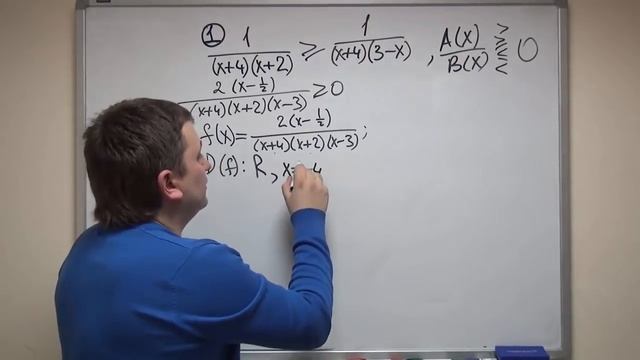 ① 1/((x+4)(x+2)) ≥ 1/((x+4)(3-x)) , A(x)/B(x) > ≥ ≤ < 0
2(x-1/2)/((x+4)(x+2)(x-3)) ≥ 0
f(x)= 2(x-1/2)/((x+4)(x+2)(x-3)) ;
D(f): R, x